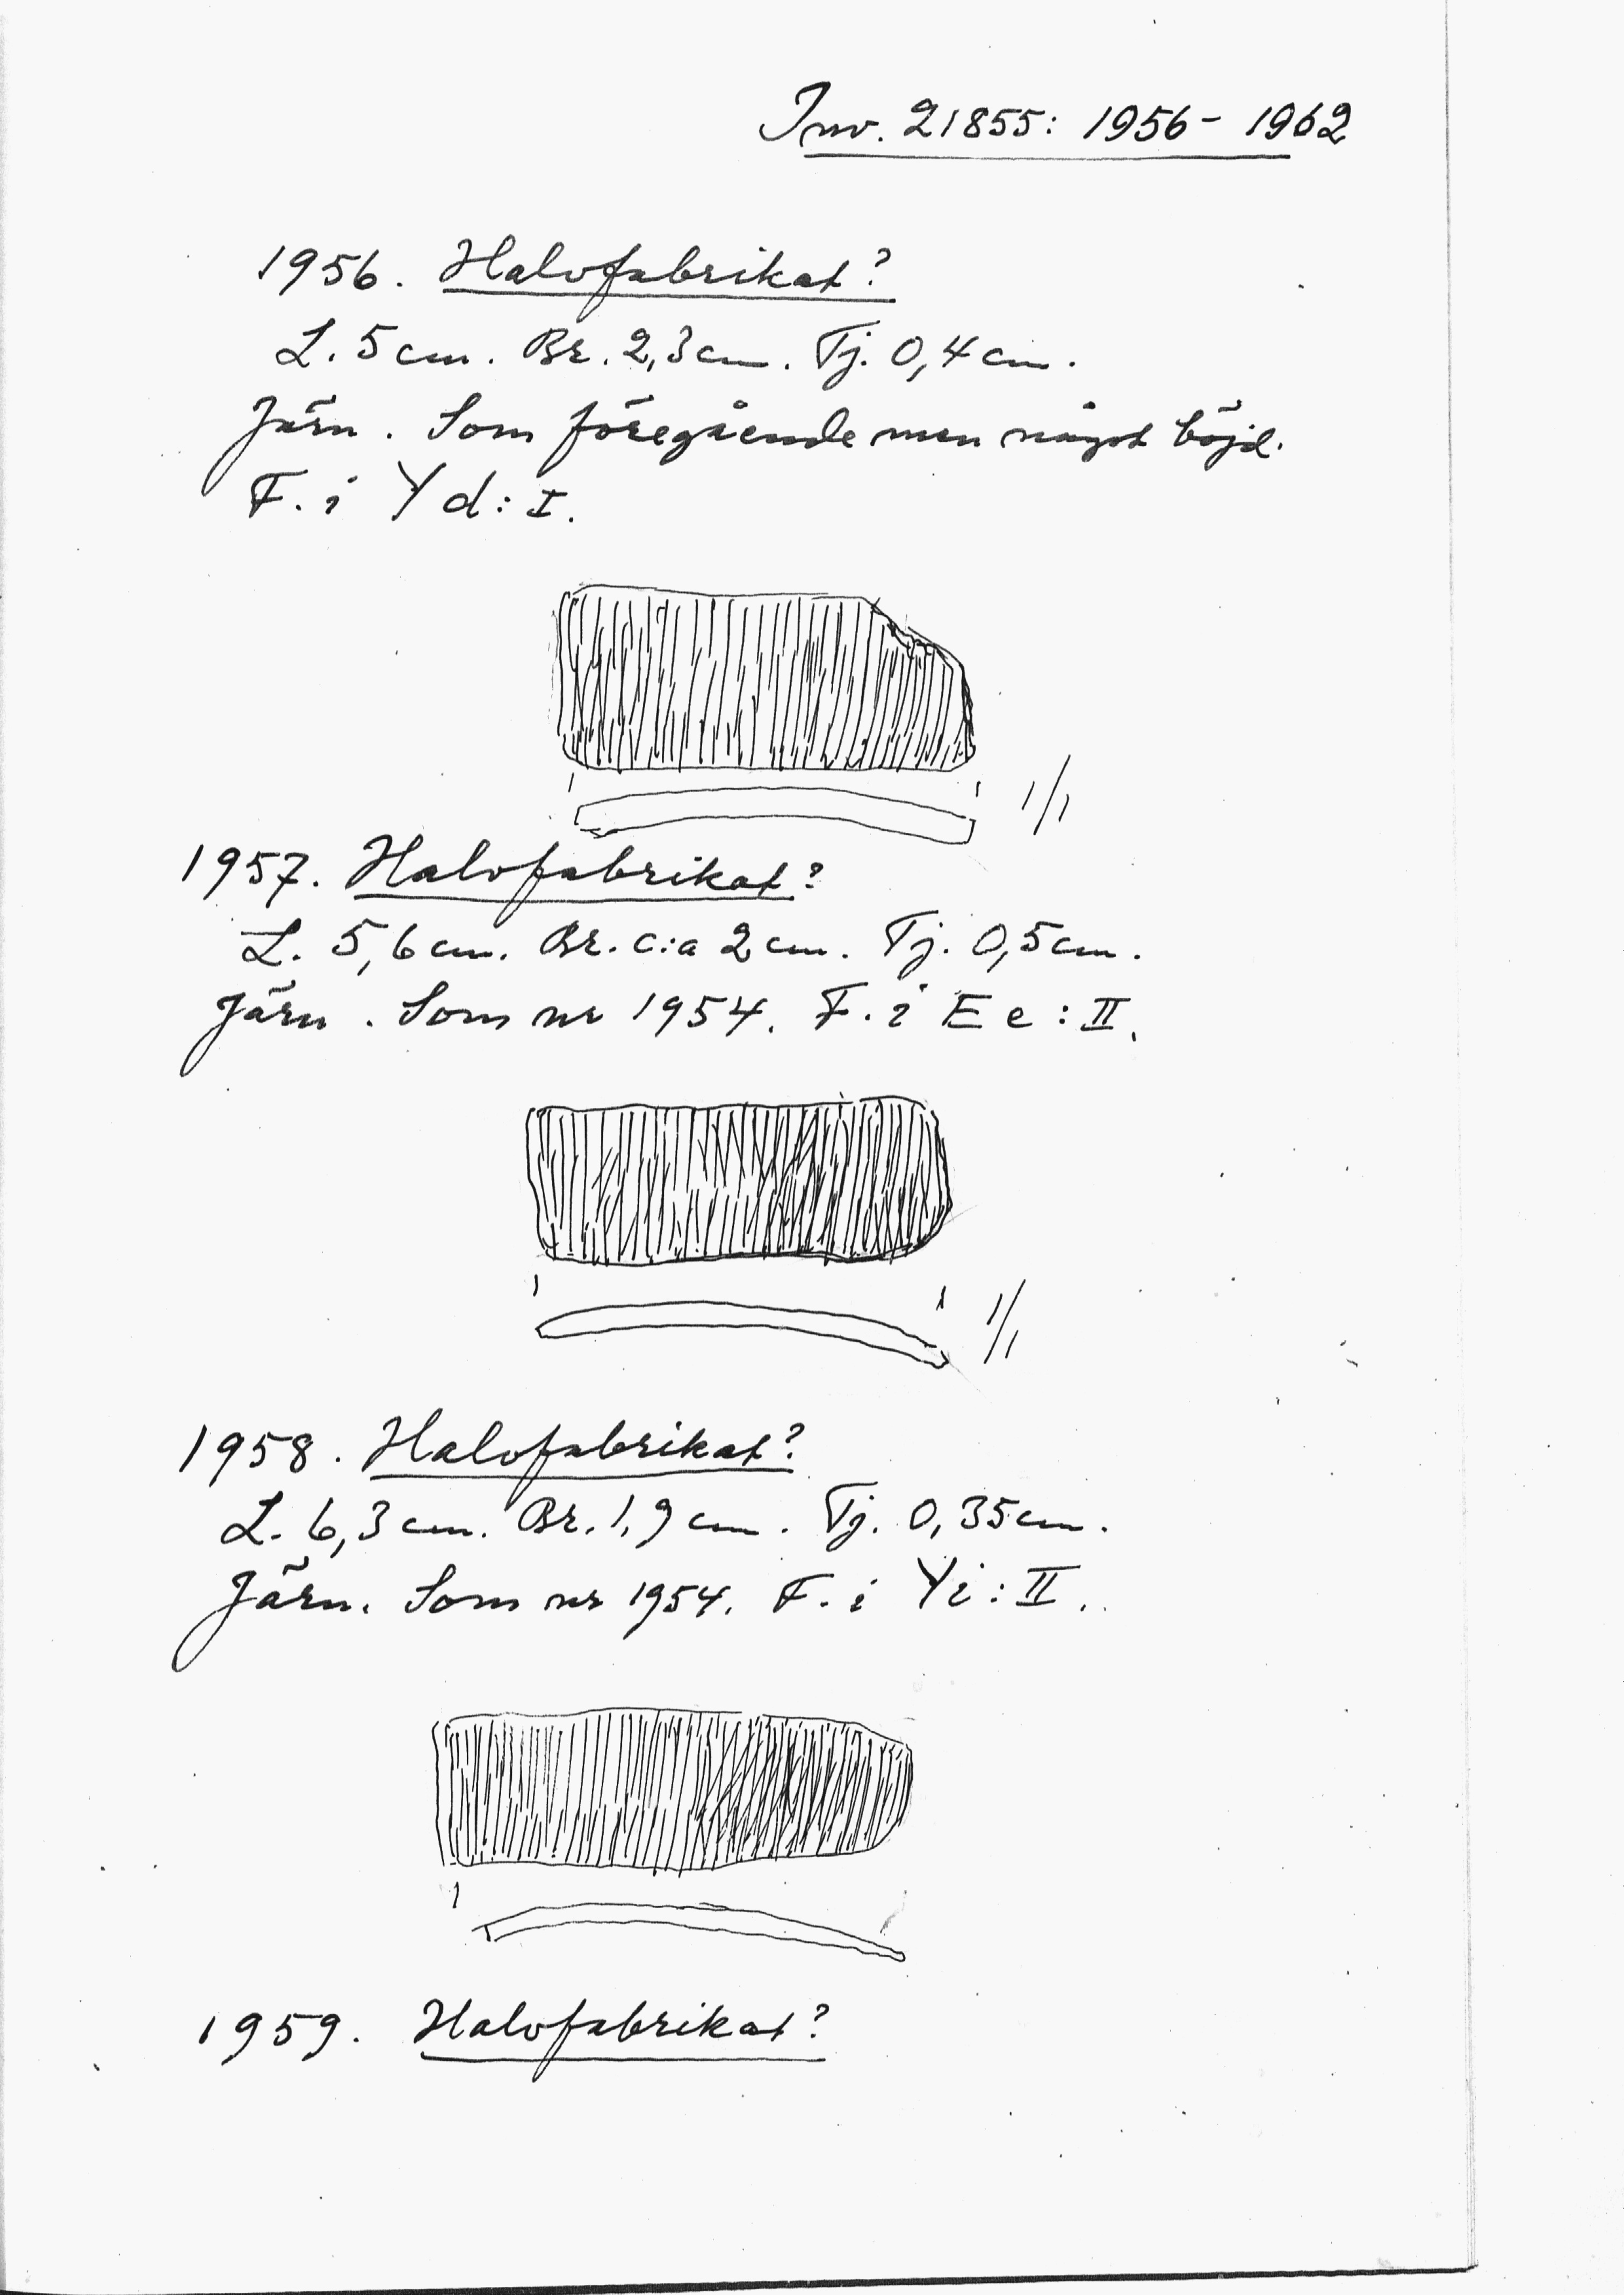 Inv. 21855: 1956 - 1962
1956. Halvfabrikat?
L. 5 cm. Br. 2,3 cm. Tj. 0,4 cm.
Järn. Som föregående men något böjd.
F. i Y d : I.
1/1
1957. Halvfabrikat?
L. 5,6 cm. Br. c:a 2 cm. Tj. 0,5 cm.
Järn. Som nr 1954. F. i E e : II.
1/1
1958. Halvfabrikat?
L. 6,3 cm. Br. 1,9 cm. Tj. 0,35 cm.
Järn. Som nr 1954. F. i Y i : II.
1959. Halvfabrikat?